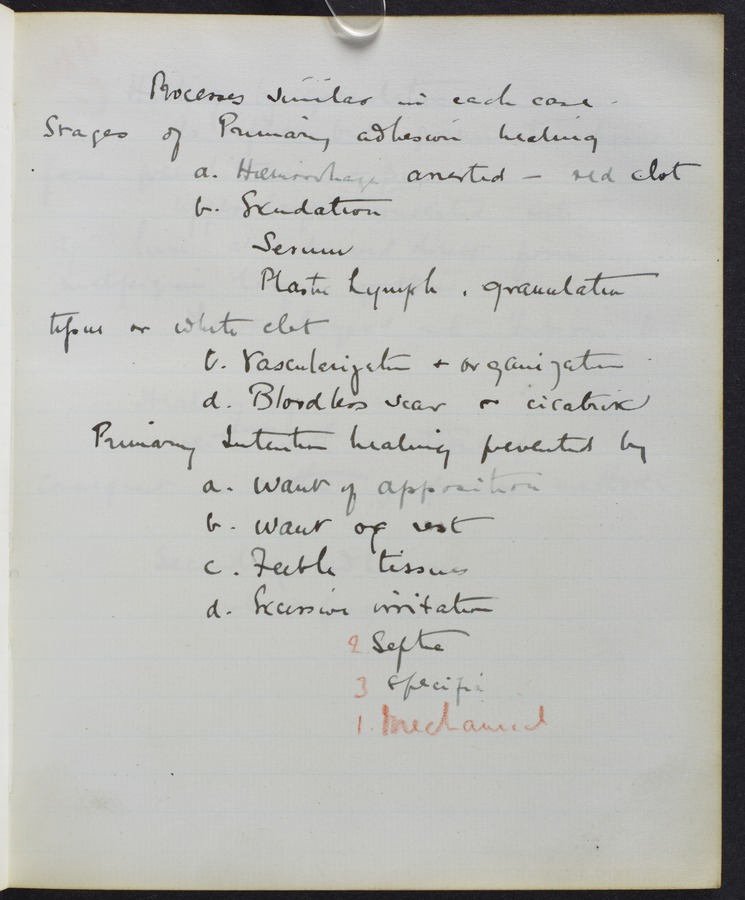 Processes similar in each case.
Stages of Primary adhesion healing
a. Haemorrhage arrested - red clot
b. Exudation
Serum
Plastic Lymph, granulation
tissue or white clot
c. Vascularization + organization
d. Bloodless scar or cicatrix
Primary Intention healing prevented by
a. Want of apposition
b. Want of rest
c. Feeble tissues
d. Excessive irritation
2 Septic
3 specific
1. Mechanical